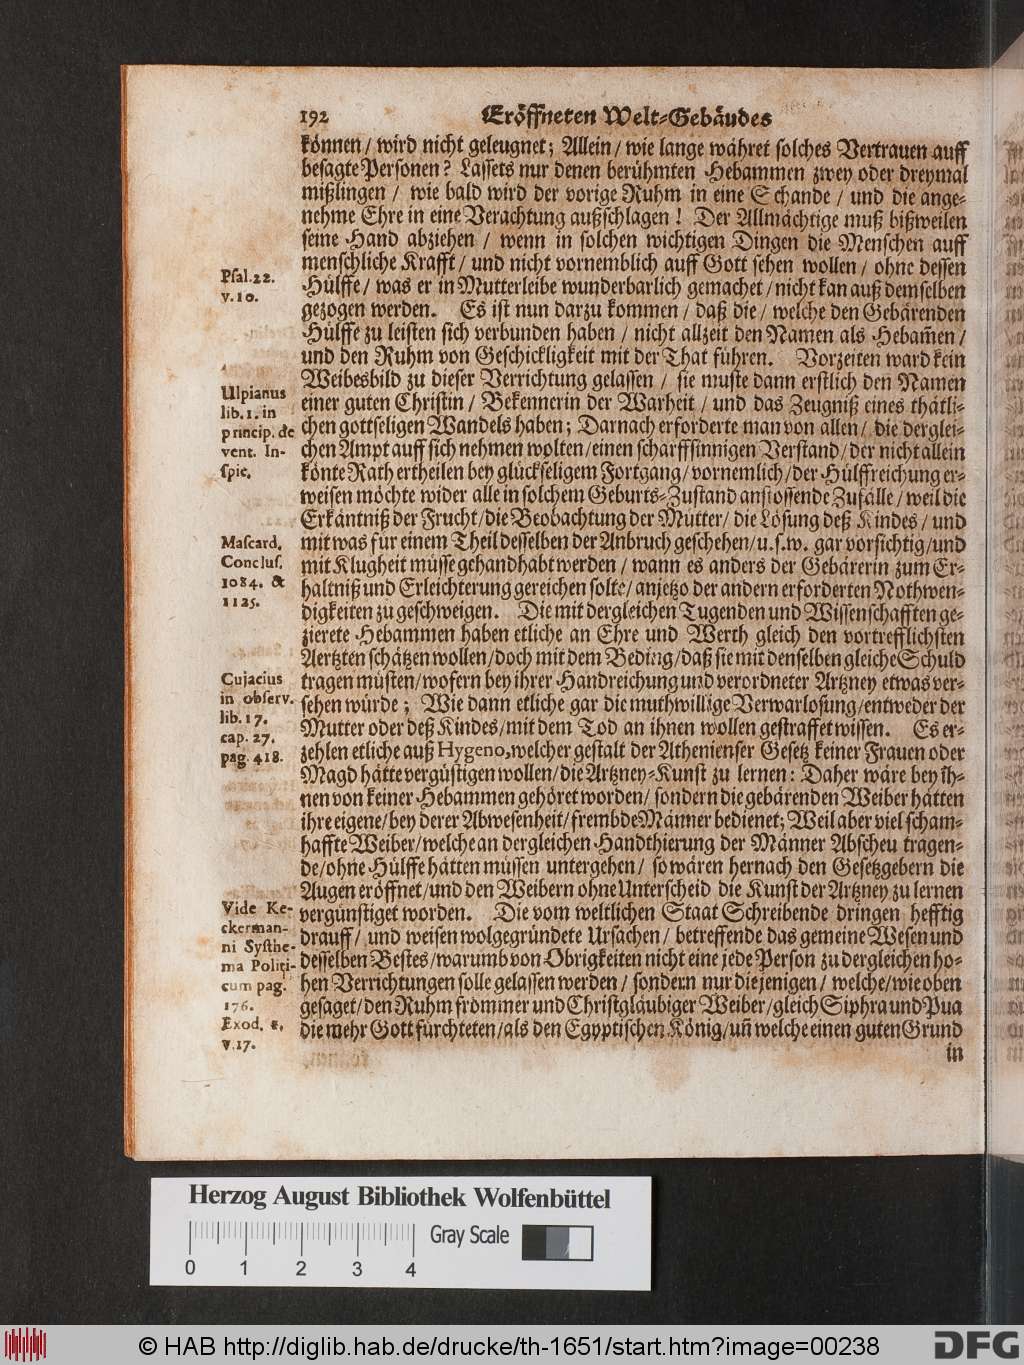 192
Eröffneten Welt-Gebäudes
können / wird nicht geleugnet; Allein / wie lange währet solches Vertrauen auff
besagte Personen? Lassets nur denen berühmten Hebammen zwey oder dreymal
mißlingen / wie bald wird der vorige Ruhm in eine Schande / und die ange-
nehme Ehre in eine Verachtung außschlagen! Der Allmächtige muß bißweilen
seine Hand abziehen / wenn in solchen wichtigen Dingen die Menschen auff
menschliche Krafft / und nicht vornemblich auff Gott sehen wollen / ohne dessen
Hülffe / was er in Mutterleibe wunderbarlich gemachet / nicht kan auß demselben
gezogen werden. Es ist nun darzu kommen / daß die / welche den Gebärenden
Hülffe zu leisten sich verbunden haben / nicht allzeit den Namen als Hebam̃en /
und den Ruhm von Geschickligkeit mit der That führen. Vorzeiten ward kein
Weibesbild zu dieser Verrichtung gelassen / sie muste dann erstlich den Namen
einer guten Christin / Bekennerin der Warheit / und das Zeugniß eines thätli-
chen gottseligen Wandels haben; Darnach erforderte man von allen / die derglei-
chen Ampt auff sich nehmen wolten / einen scharffsinnigen Verstand / der nicht allein
könte Rath ertheilen bey glückseligem Fortgang / vornemlich / der Hülffreichung er-
weisen möchte wider alle in solchem Geburts-Zustand anstossende Zufälle / weil die
Erkäntniß der Frucht / die Beobachtung der Mütter / die Lösung deß Kindes / und
mit was für einem Theil desselben der Anbruch geschehen / u.s.w. gar vorsichtig / und
mit Klugheit müsse gehandhabt werden / wann es anders der Gebärerin zum Er-
haltniß und Erleichterung gereichen solte / anjetzo der andern erforderten Nothwen-
digkeiten zu geschweigen. Die mit dergleichen Tugenden und Wissenschafften ge-
zierete Hebammen haben etliche an Ehre und Werth gleich den vortrefflichsten
Aertzten schätzen wollen / doch mit dem Beding / daß sie mit denselben gleiche Schuld
tragen müsten / wofern bey ihrer Handreichung und verordneter Artzney etwas ver-
sehen würde; Wie dann etliche gar die muthwillige Verwarlosung / entweder der
Mutter oder deß Kindes / mit dem Tod an ihnen wollen gestraffet wissen. Es er-
zehlen etliche auß Hygeno, welcher gestalt der Athenienser Gesetz keiner Frauen oder
Magd hätte vergünstigen wollen / die Artzney-Kunst zu lernen: Daher wäre bey ih-
nen von keiner Hebammen gehöret worden / sondern die gebärenden Weiber hätten
ihre eigene / bey derer Abwesenheit / frembde Männer bedienet; Weil aber viel scham-
haffte Weiber / welche an dergleichen Handthierung der Männer Abscheu tragen-
de / ohne Hülffe hätten müssen untergehen / so wären hernach den Gesetzgebern die
Augen eröffnet / und den Weibern ohne Unterscheid die Kunst der Artzney zu lernen
vergünstiget worden. Die vom weltlichen Staat Schreibende dringen hefftig
drauff / und weisen wolgegründete Ursachen / betreffende das gemeine Wesen und
desselben Bestes / warumb von Obrigkeiten nicht eine jede Person zu dergleichen ho-
hen Verrichtungen solle gelassen werden / sondern nur diejenigen / welche / wie oben
gesaget / den Ruhm frommer und Christgläubiger Weiber / gleich Siphra und Pua
die mehr Gott fürchteten / als den Egyptischen König / uñ welche einen guten Grund
in
Psal. 22.
v. 10.
Ulpianus
lib. 1. in
princip. de
vent. In-
spic.
Mascard.
Conclus.
1084. &
1125.
Cujacius
in observ.
lib. 17.
cap. 27.
pag. 418.
Vide Ke-
ckerman-
ni Systhe-
ma Politi-
cum pag.
176.
Exod. 1.
v. 17.
Herzog August Bibliothek Wolfenbüttel
Gray Scale
0 1 2 3 4
© HAB http://diglib.hab.de/drucke/th-1651/start.htm?image=00238
DFG